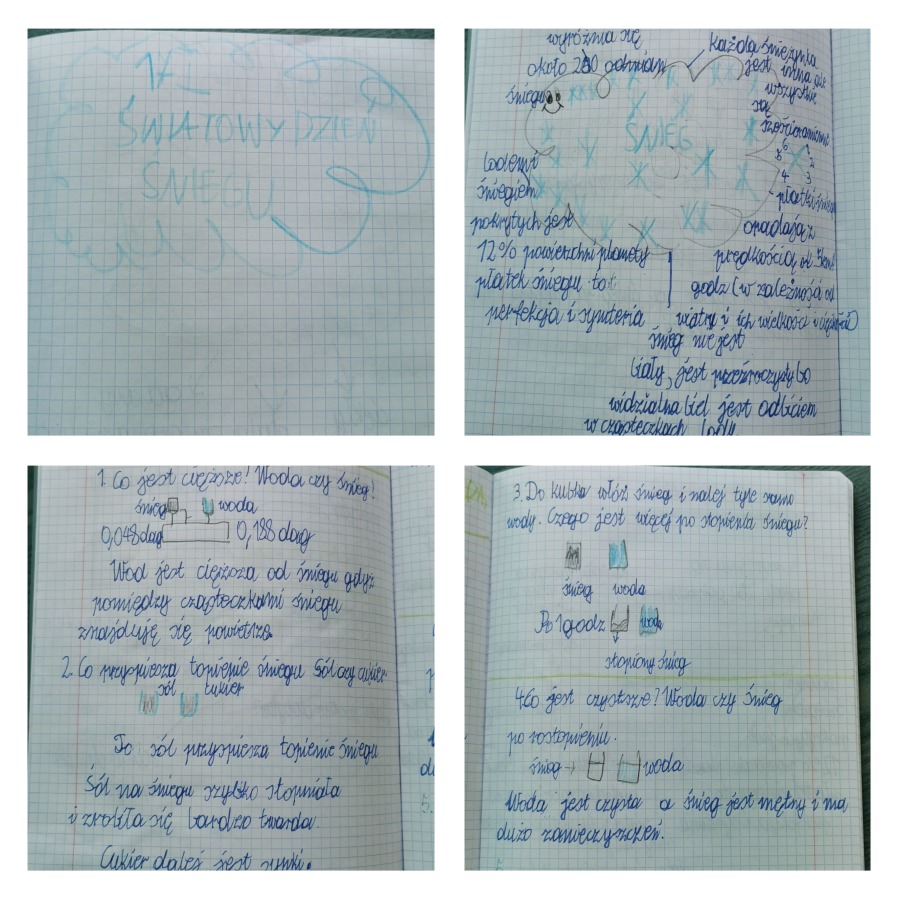 17 I
ŚWIATOWY DZIEŃ
ŚNIEGU
wyróżnia się
około 280 odmian
śniegu
ŚNIEG
Każda śnieżynka
jest inna ale
wszystkie
są
sześcioramienne
6 1
5 2
4 3
płatki śniegu
opadają z
prędkością ok. 5km
godz (w zależności od
wiatru i ich wielkości i ciężkości)
lodem i
śniegiem
pokrytych jest
12% powierzchni planety
płatek śniegu to
perfekcja i symteria
śnieg nie jest
biały, jest przeźroczysty bo
widzialna biel jest odbiciem
w cząsteczkach lodu
1. Co jest cięższe? Woda czy śnieg?
śnieg woda
0,048 dag 0,188 dag
Wod jest cięższa od śniegu gdyż
pomiędzy cząsteczkami śniegu
znajduję się powietrze.
2. Co przyspiesza topnienie śniegu sól czy cukier
sól cukier
To sól przyspiesza topienie śniegu
Sól na śniegu szybko stopniała
i zrobiła się bardzo twarda.
Cukier dalej jest sypki.
3. Do kubka włóż śnieg i nalej tyle samo
wody. Czego jest więcej po stopieniu śniegu?
śnieg woda
Po 1 godz woda
stopiony śnieg
4. Co jest czystsze? Woda czy śnieg
po rostopieniu.
śnieg → woda
Woda jest czysta a śnieg jest mętny i ma
dużo zanieczyszczeń.